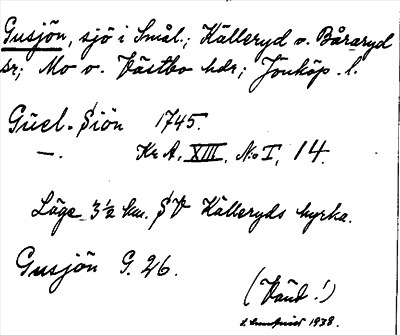 Gusjön, sjö i Smål.; Källeryd o. Båraryd
sr; Mo o. Västbo hdr; Jönköp. l.
Güel-Siön 1745.
—. Kr A, XIII, No I, 14.
Läge 3½ km. SV Källeryds kyrka.
Gusjön G. 26.
(Vänd!)
1938.